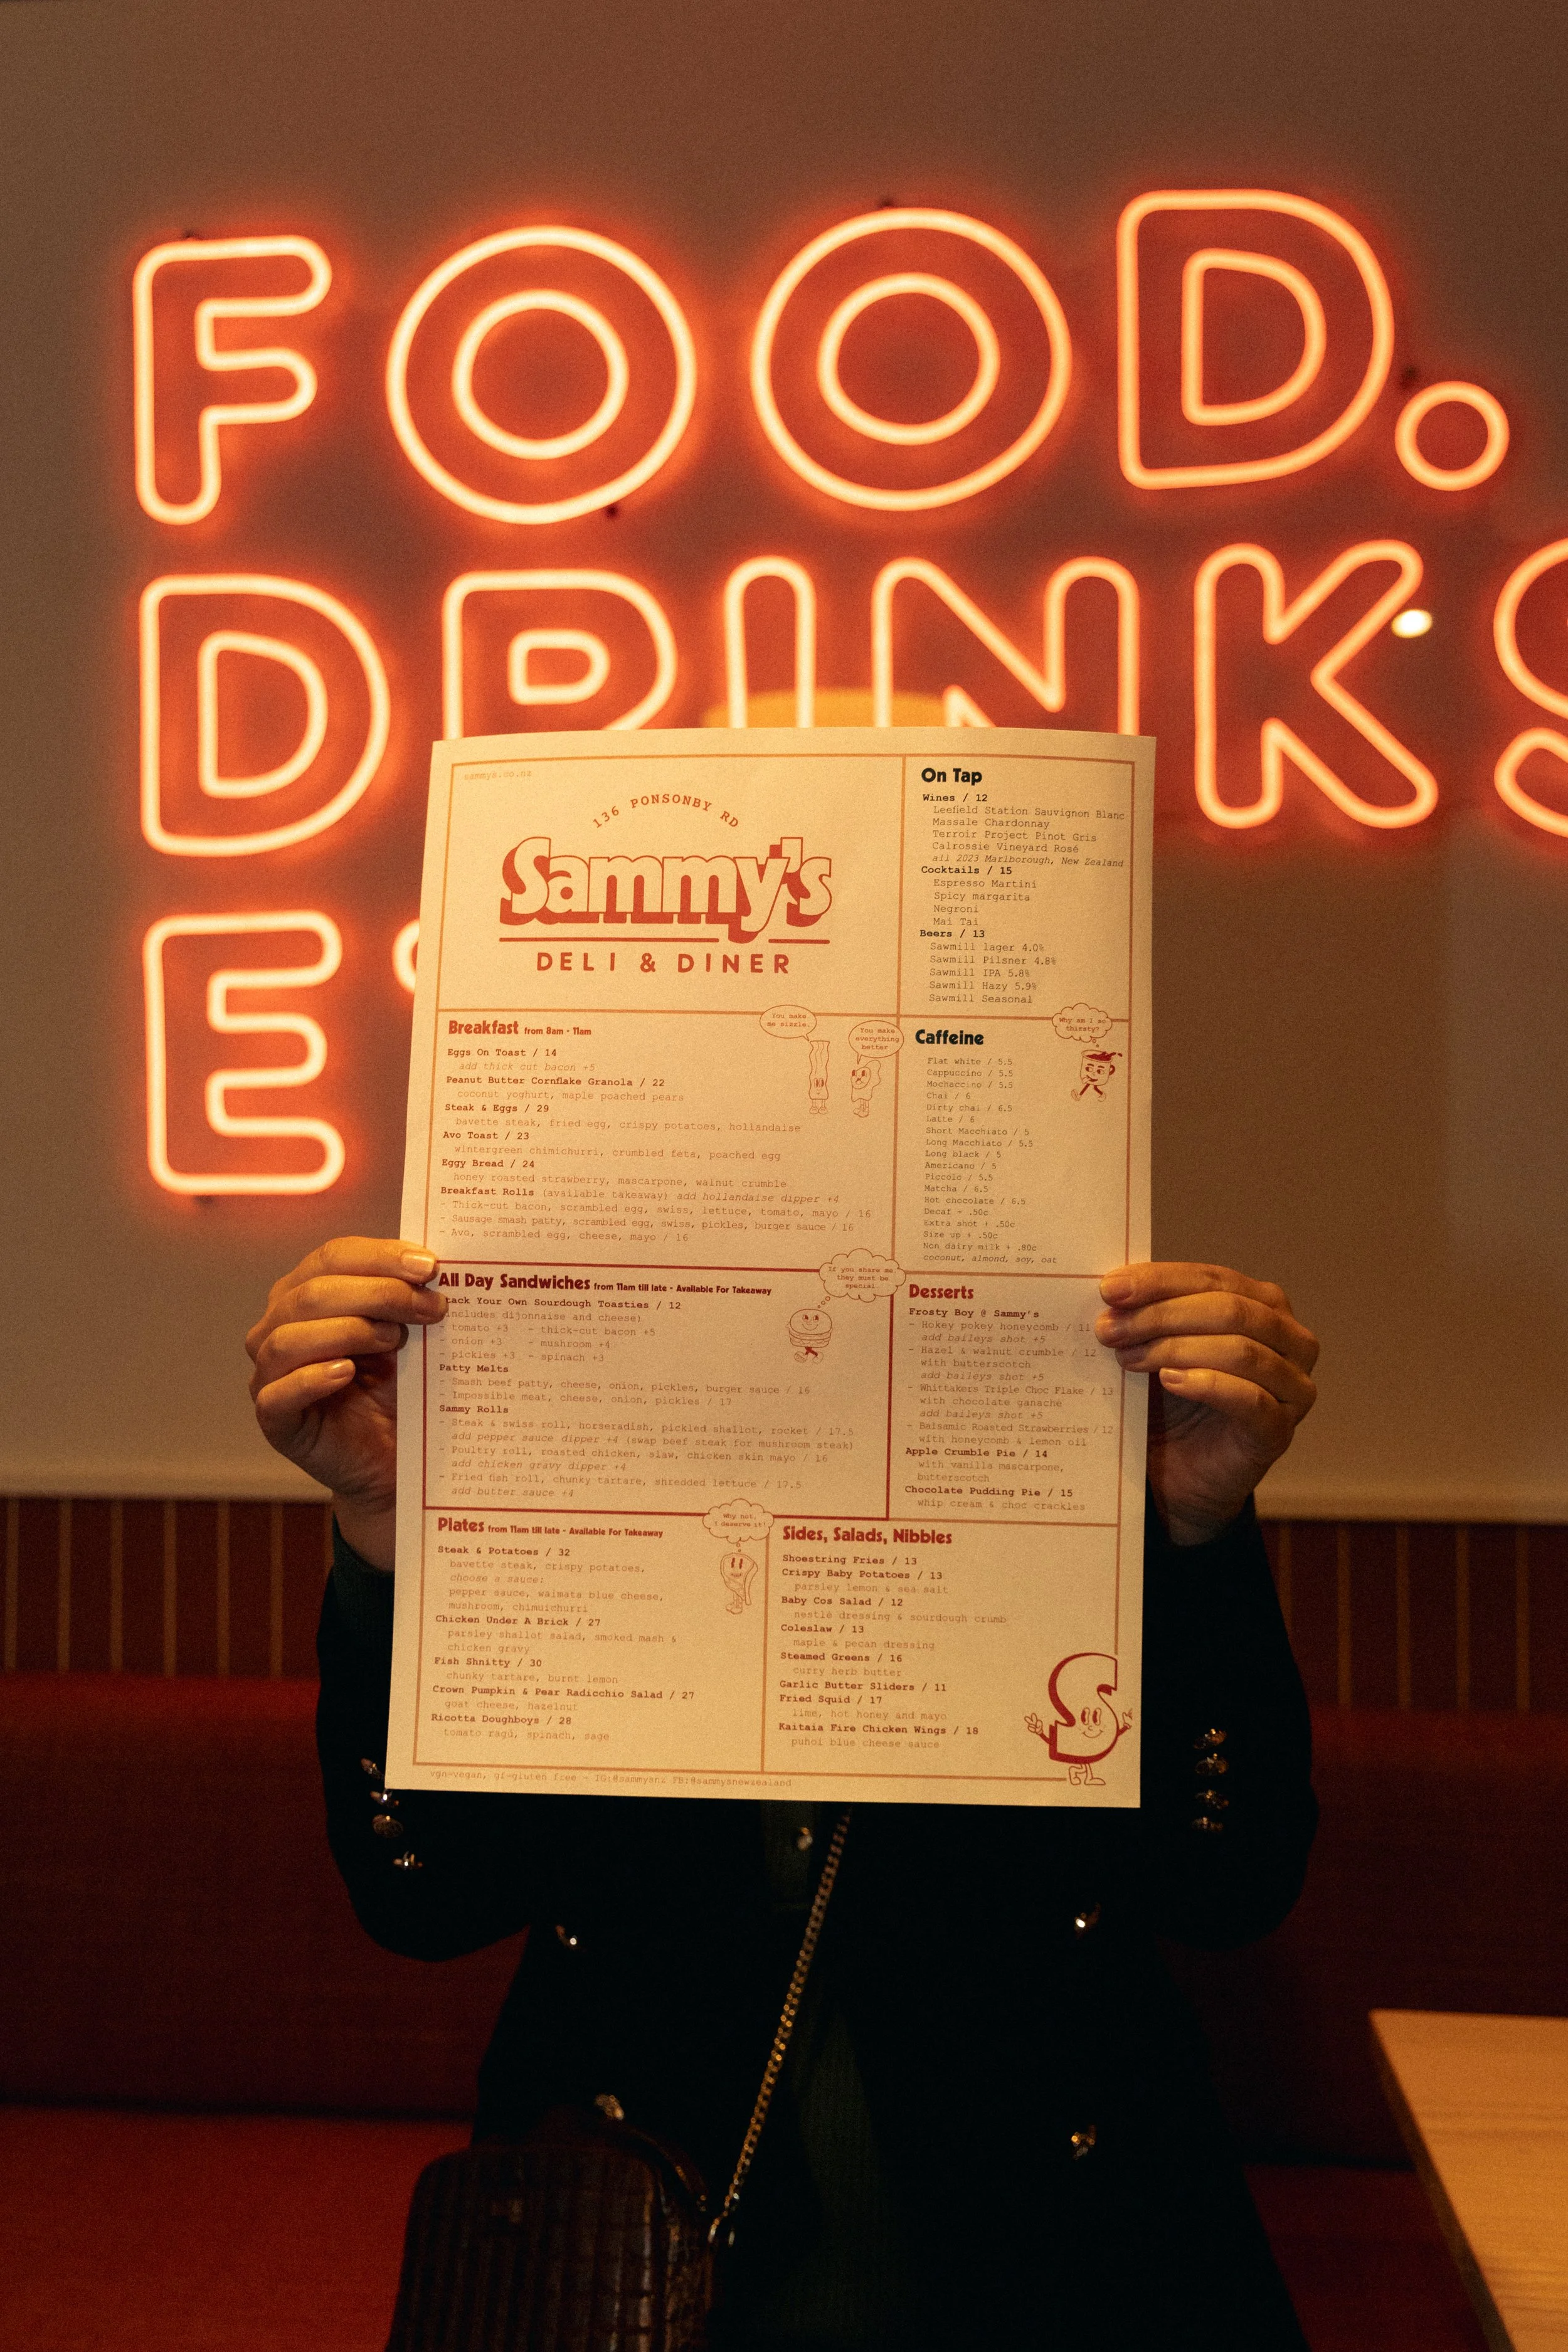 FOOD.
DRINKS
E
sammys.co.nz
136 PONSONBY RD
Sammy's
DELI & DINER
On Tap
Wines / 12
Leefield Station Sauvignon Blanc
Massale Chardonnay
Terroir Project Pinot Gris
Calrossie Vineyard Rosé
all 2023 Marlborough, New Zealand
Cocktails / 15
Espresso Martini
Spicy margarita
Negroni
Mai Tai
Beers / 13
Sawmill lager 4.0%
Sawmill Pilsner 4.8%
Sawmill IPA 5.8%
Sawmill Hazy 5.9%
Sawmill Seasonal
Breakfast from 8am - 11am
Eggs On Toast / 14
add thick cut bacon +5
Peanut Butter Cornflake Granola / 22
coconut yoghurt, maple poached pears
Steak & Eggs / 29
bavette steak, fried egg, crispy potatoes, hollandaise
Avo Toast / 23
wintergreen chimichurri, crumbled feta, poached egg
Eggy Bread / 24
honey roasted strawberry, mascarpone, walnut crumble
Breakfast Rolls (available takeaway) add hollandaise dipper +4
- Thick-cut bacon, scrambled egg, swiss, lettuce, tomato, mayo / 16
- Sausage smash patty, scrambled egg, swiss, pickles, burger sauce / 16
- Avo, scrambled egg, cheese, mayo / 16
You make
me sizzle.
You make
everything
better
Caffeine
Why am I so
thirsty?
Flat white / 5.5
Cappuccino / 5.5
Mochaccino / 5.5
Chai / 6
Dirty chai / 6.5
Latte / 6
Short Macchiato / 5
Long Macchiato / 5.5
Long black / 5
Americano / 5
Piccolo / 5.5
Matcha / 6.5
Hot chocolate / 6.5
Decaf + .50c
Extra shot + .50c
Size up + .50c
Non dairy milk + .80c
coconut, almond, soy, oat
All Day Sandwiches from 11am till late - Available For Takeaway
If you share me
they must be
special
tack Your Own Sourdough Toasties / 12
includes dijonnaise and cheese)
- tomato +3 - thick-cut bacon +5
- onion +3 - mushroom +4
- pickles +3 - spinach +3
Patty Melts
- Smash beef patty, cheese, onion, pickles, burger sauce / 16
- Impossible meat, cheese, onion, pickles / 17
Sammy Rolls
- Steak & swiss roll, horseradish, pickled shallot, rocket / 17.5
add pepper sauce dipper +4 (swap beef steak for mushroom steak)
- Poultry roll, roasted chicken, slaw, chicken skin mayo / 16
add chicken gravy dipper +4
- Fried fish roll, chunky tartare, shredded lettuce / 17.5
add butter sauce +4
Desserts
Frosty Boy @ Sammy's
- Hokey pokey honeycomb / 11
add baileys shot +5
- Hazel & walnut crumble / 12
with butterscotch
add baileys shot +5
- Whittakers Triple Choc Flake / 13
with chocolate ganache
add baileys shot +5
- Balsamic Roasted Strawberries / 12
with honeycomb & lemon oil
Apple Crumble Pie / 14
with vanilla mascarpone,
butterscotch
Chocolate Pudding Pie / 15
whip cream & choc crackles
Plates from 11am till late - Available For Takeaway
Why not,
I deserve it!
Steak & Potatoes / 32
bavette steak, crispy potatoes,
choose a sauce:
pepper sauce, waimata blue cheese,
mushroom, chimuichurri
Chicken Under A Brick / 27
parsley shallot salad, smoked mash &
chicken gravy
Fish Shnitty / 30
chunky tartare, burnt lemon
Crown Pumpkin & Pear Radicchio Salad / 27
goat cheese, hazelnut
Ricotta Doughboys / 28
tomato ragù, spinach, sage
Sides, Salads, Nibbles
Shoestring Fries / 13
Crispy Baby Potatoes / 13
parsley lemon & sea salt
Baby Cos Salad / 12
nestlé dressing & sourdough crumb
Coleslaw / 13
maple & pecan dressing
Steamed Greens / 16
curry herb butter
Garlic Butter Sliders / 11
Fried Squid / 17
lime, hot honey and mayo
Kaitaia Fire Chicken Wings / 18
puhoi blue cheese sauce
vgn-vegan, gf-gluten free - IG:@sammysnz FB:@sammysnewzealand